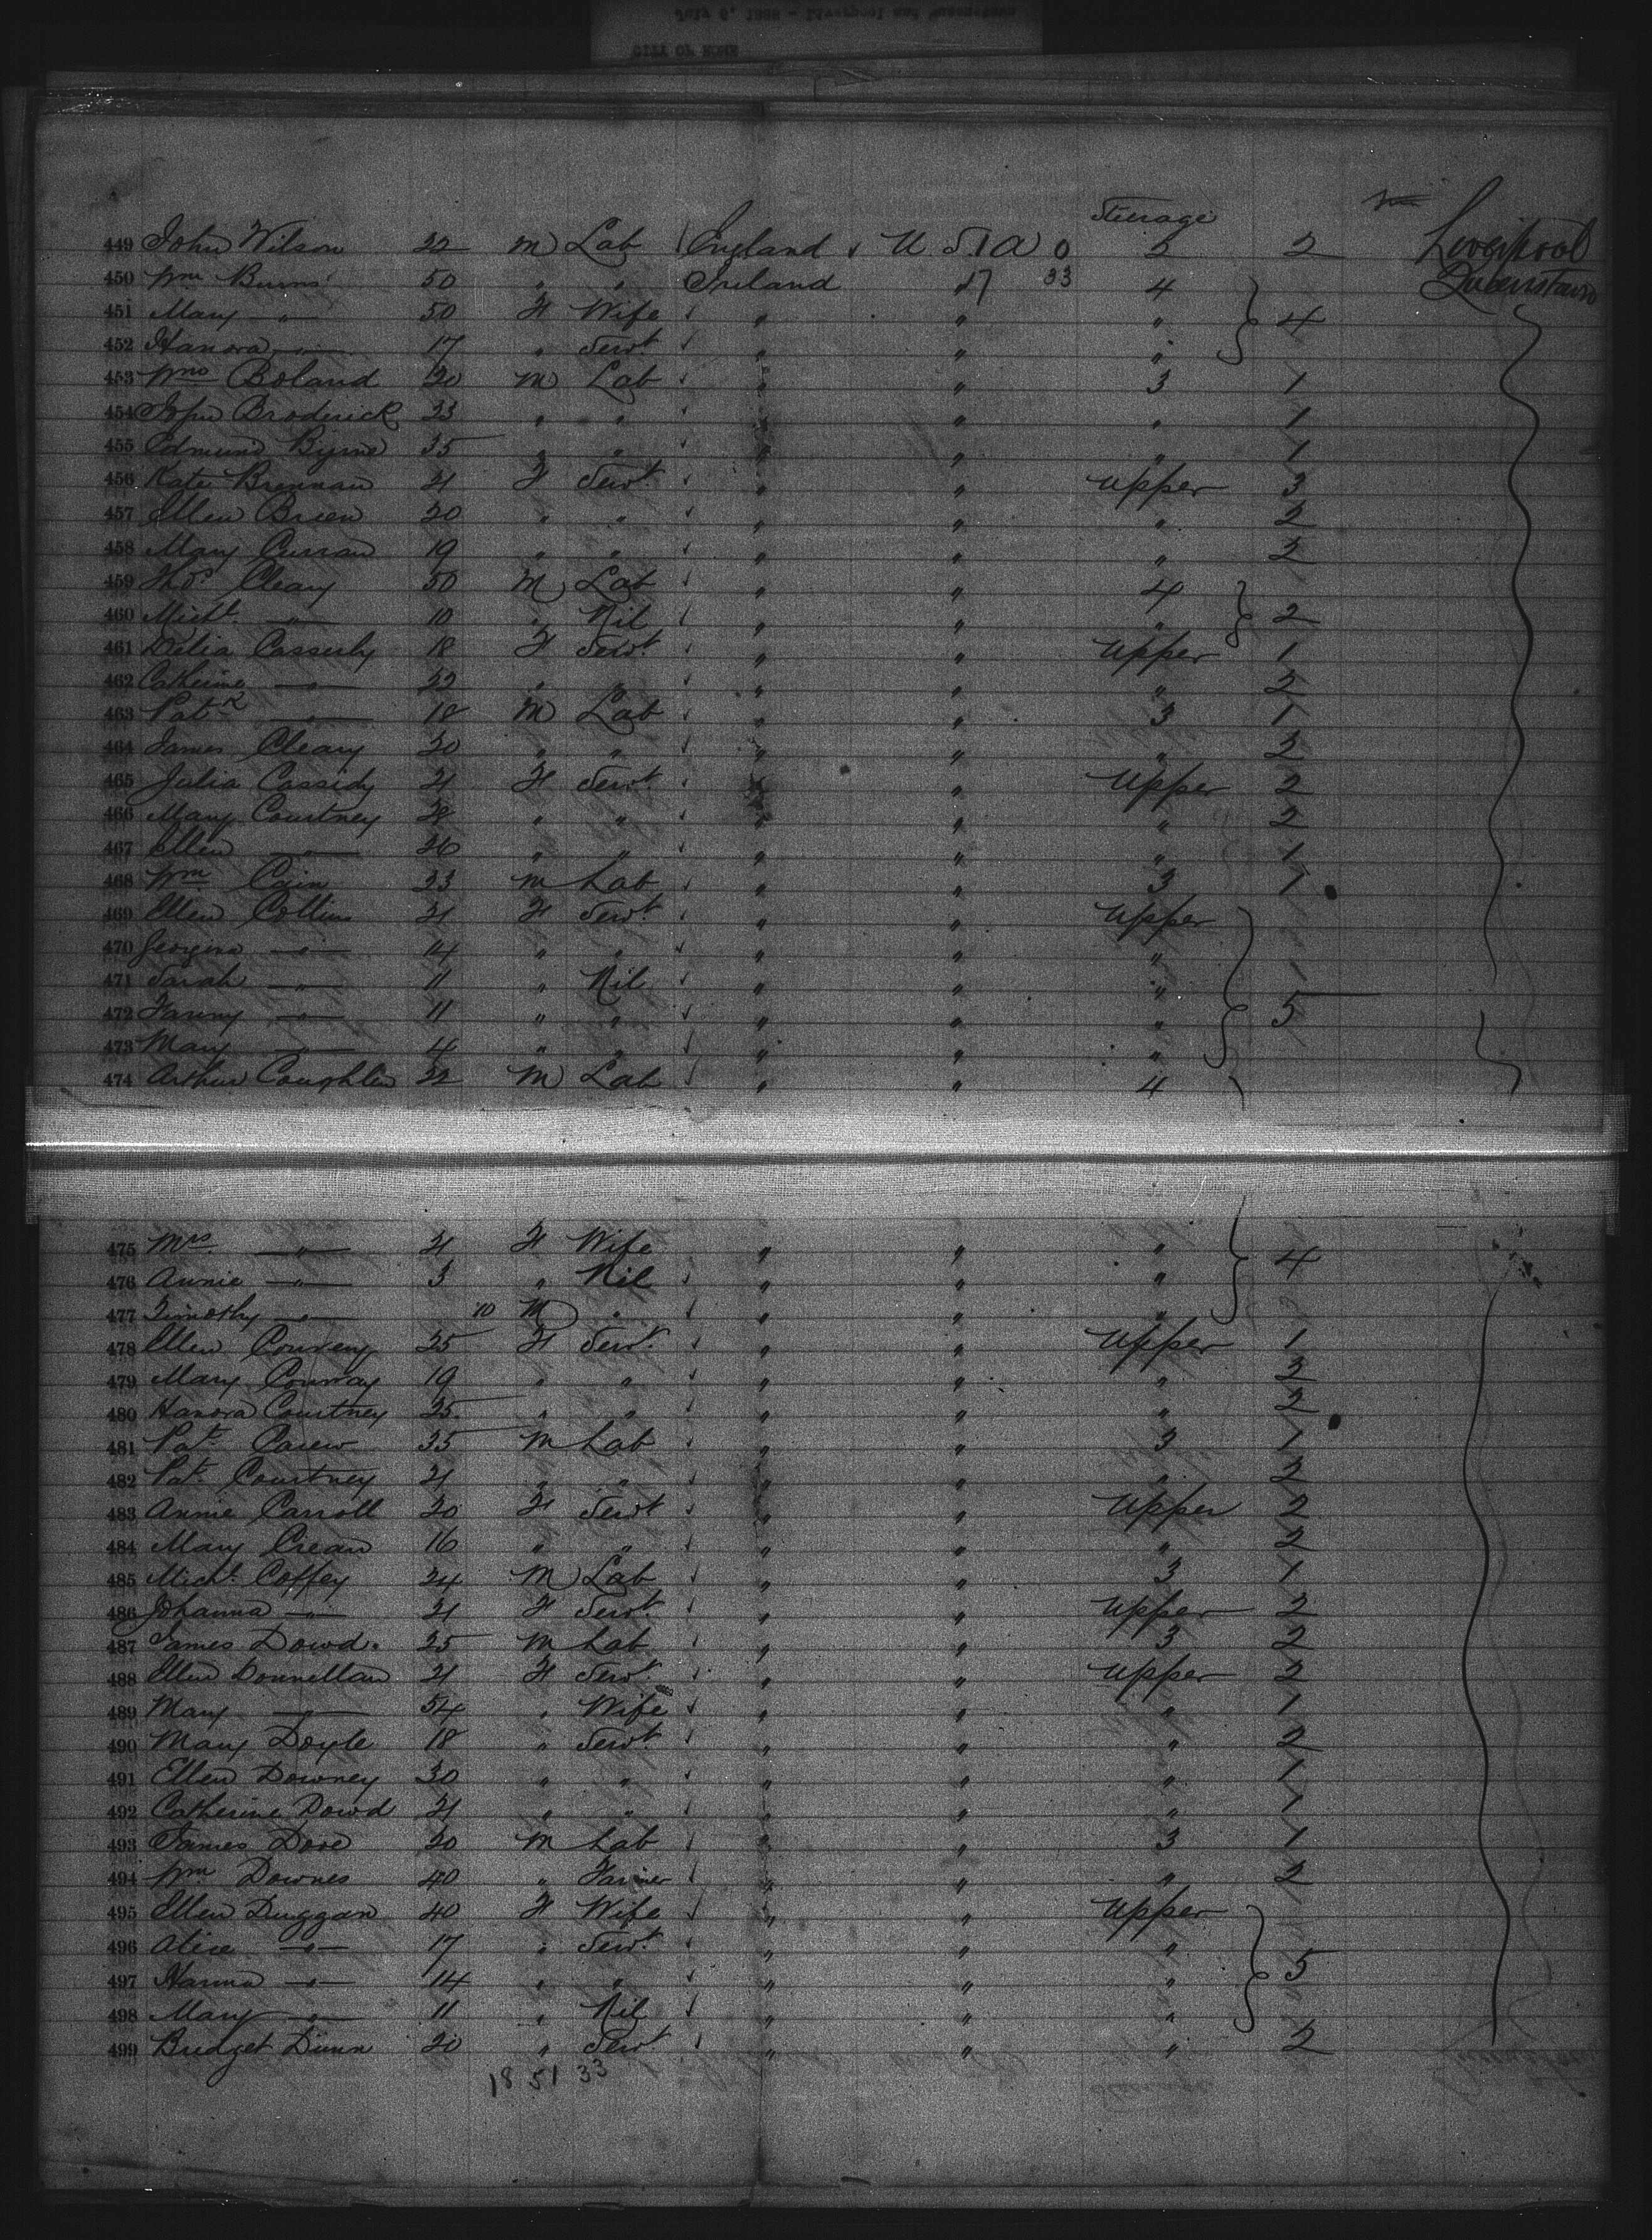 Steerage
449 John Wilson 22 M Lab England U S A 0 2 2 Liverpool
450 Wm Burns 50 " " Ireland " 33 4 Queenstown
451 Mary " 50 F Wife " " " 4
452 Hanora " 17 " Servt " " "
453 Boland 20 M Lab " " 3 1
454 John Broderick 23 " " " " " 1
455 Edmund Byrne 35 " " " " " 1
456 Kate Brennan 21 F Servt " " Upper 3
457 Ellen Breen 20 " " " " " 2
458 Mary Curran 19 " " " " " 2
459 Thos Cleary 50 M Lab " " 4
460 Michl " 10 " Nil " " " 2
461 Delia Casserly 18 F Servt " " Upper 1
462 Catherine " 22 " " " " " 2
463 Patk " 18 M Lab " " 3 1
464 James Cleary 20 " " " " " 2
465 Julia Cassidy 21 F Servt " " Upper 2
466 Mary Courtney 28 " " " " " 2
467 Ellen " 26 " " " " " 1
468 Wm Cain 23 M Lab " " 3 1
469 Ellen Collins 31 F Servt " " Upper
470 Georgina " 14 " " " " "
471 Sarah " 11 " Nil " " "
472 Fanny " 11 " " " " " 5
473 Mary " 4 " " " " "
474 Arthur Coughlin 22 M Lab " " 4
475 Mrs " 21 F Wife " " " 4
476 Annie " 3 " Nil " " "
477 Timothy " 10 M " " " "
478 Ellen 25 F Servt " " Upper 1
479 Mary Conway 19 " " " " " 2
480 Hanora Courtney 25 " " " " " 2
481 Pat Carew 35 M Lab " " 3 1
482 Pat Courtney 21 " " " " " 2
483 Annie Carroll 20 F Servt " " Upper 2
484 Mary Crean 16 " " " " " 2
485 Michl Coffey 24 M Lab " " 3 1
486 Johanna " 21 F Servt " " Upper 2
487 James Dowd 25 M Lab " " 3 2
488 Ellen Donnellan 21 F Servt " " Upper 2
489 Mary " 54 " Wife " " " 1
490 Mary Doyle 18 " Servt " " " 2
491 Ellen Downey 30 " " " " " 1
492 Catherine Dowd 21 " " " " " 1
493 James Dore 20 M Lab " " 3 1
494 Wm Downes 40 " Farmer " " " 2
495 Ellen Duggan 40 F Wife " " Upper
496 Alice " 17 " Servt " " "
497 Hanna " 14 " " " " " 5
498 Mary " 11 " Nil " " "
499 Bridget Dunn 20 " Servt " " " 2
18 51 33